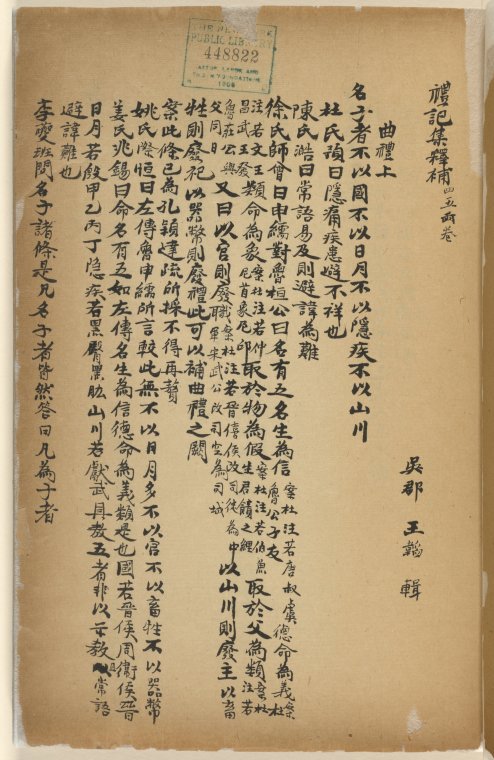 THE NEW
PUBLIC LIBRARY
448822
ASTOR, LENOX AND
TILDEN FOUNDATIONS
禮記集釋補 四五兩卷
曲禮上
吳郡 王韜 輯
名子者不以國不以日月不以隱疾不以山川
杜氏預曰隱痛疾患避不祥也
陳氏澔曰常語易及則避諱為難
徐氏師曾曰申繻對魯桓公曰名有五名生為信案杜注若唐叔虞魯公子友德命為義案杜
注若文王昌武王發類命為象案杜注若仲尼首象尼邱取於物為假案杜注若伯魚生君饋之鯉取於父為類案杜注若
魯莊公與父同日又曰以官則廢職案杜注若晉僖侯改司徒為中軍宋武公改司空為司城以山川則廢主以畜
牲則廢祀以器幣則廢禮此可以補曲禮之闕
案此條已為孔穎達疏所採不得再贅
姚氏際恒曰左傳會申繻所言較此無不以日月多不以官不以畜牲不以器幣
姜氏兆錫曰命名有五如左傳名生為信德命為義類是也國若晉侯周衛侯晉
日月若殷甲乙丙丁隱疾若黑臀黑肱山川若獻武具敖五者非以示教以常語
避諱難也
李燮班問名子諸條是凡名子者皆然答曰凡為子者